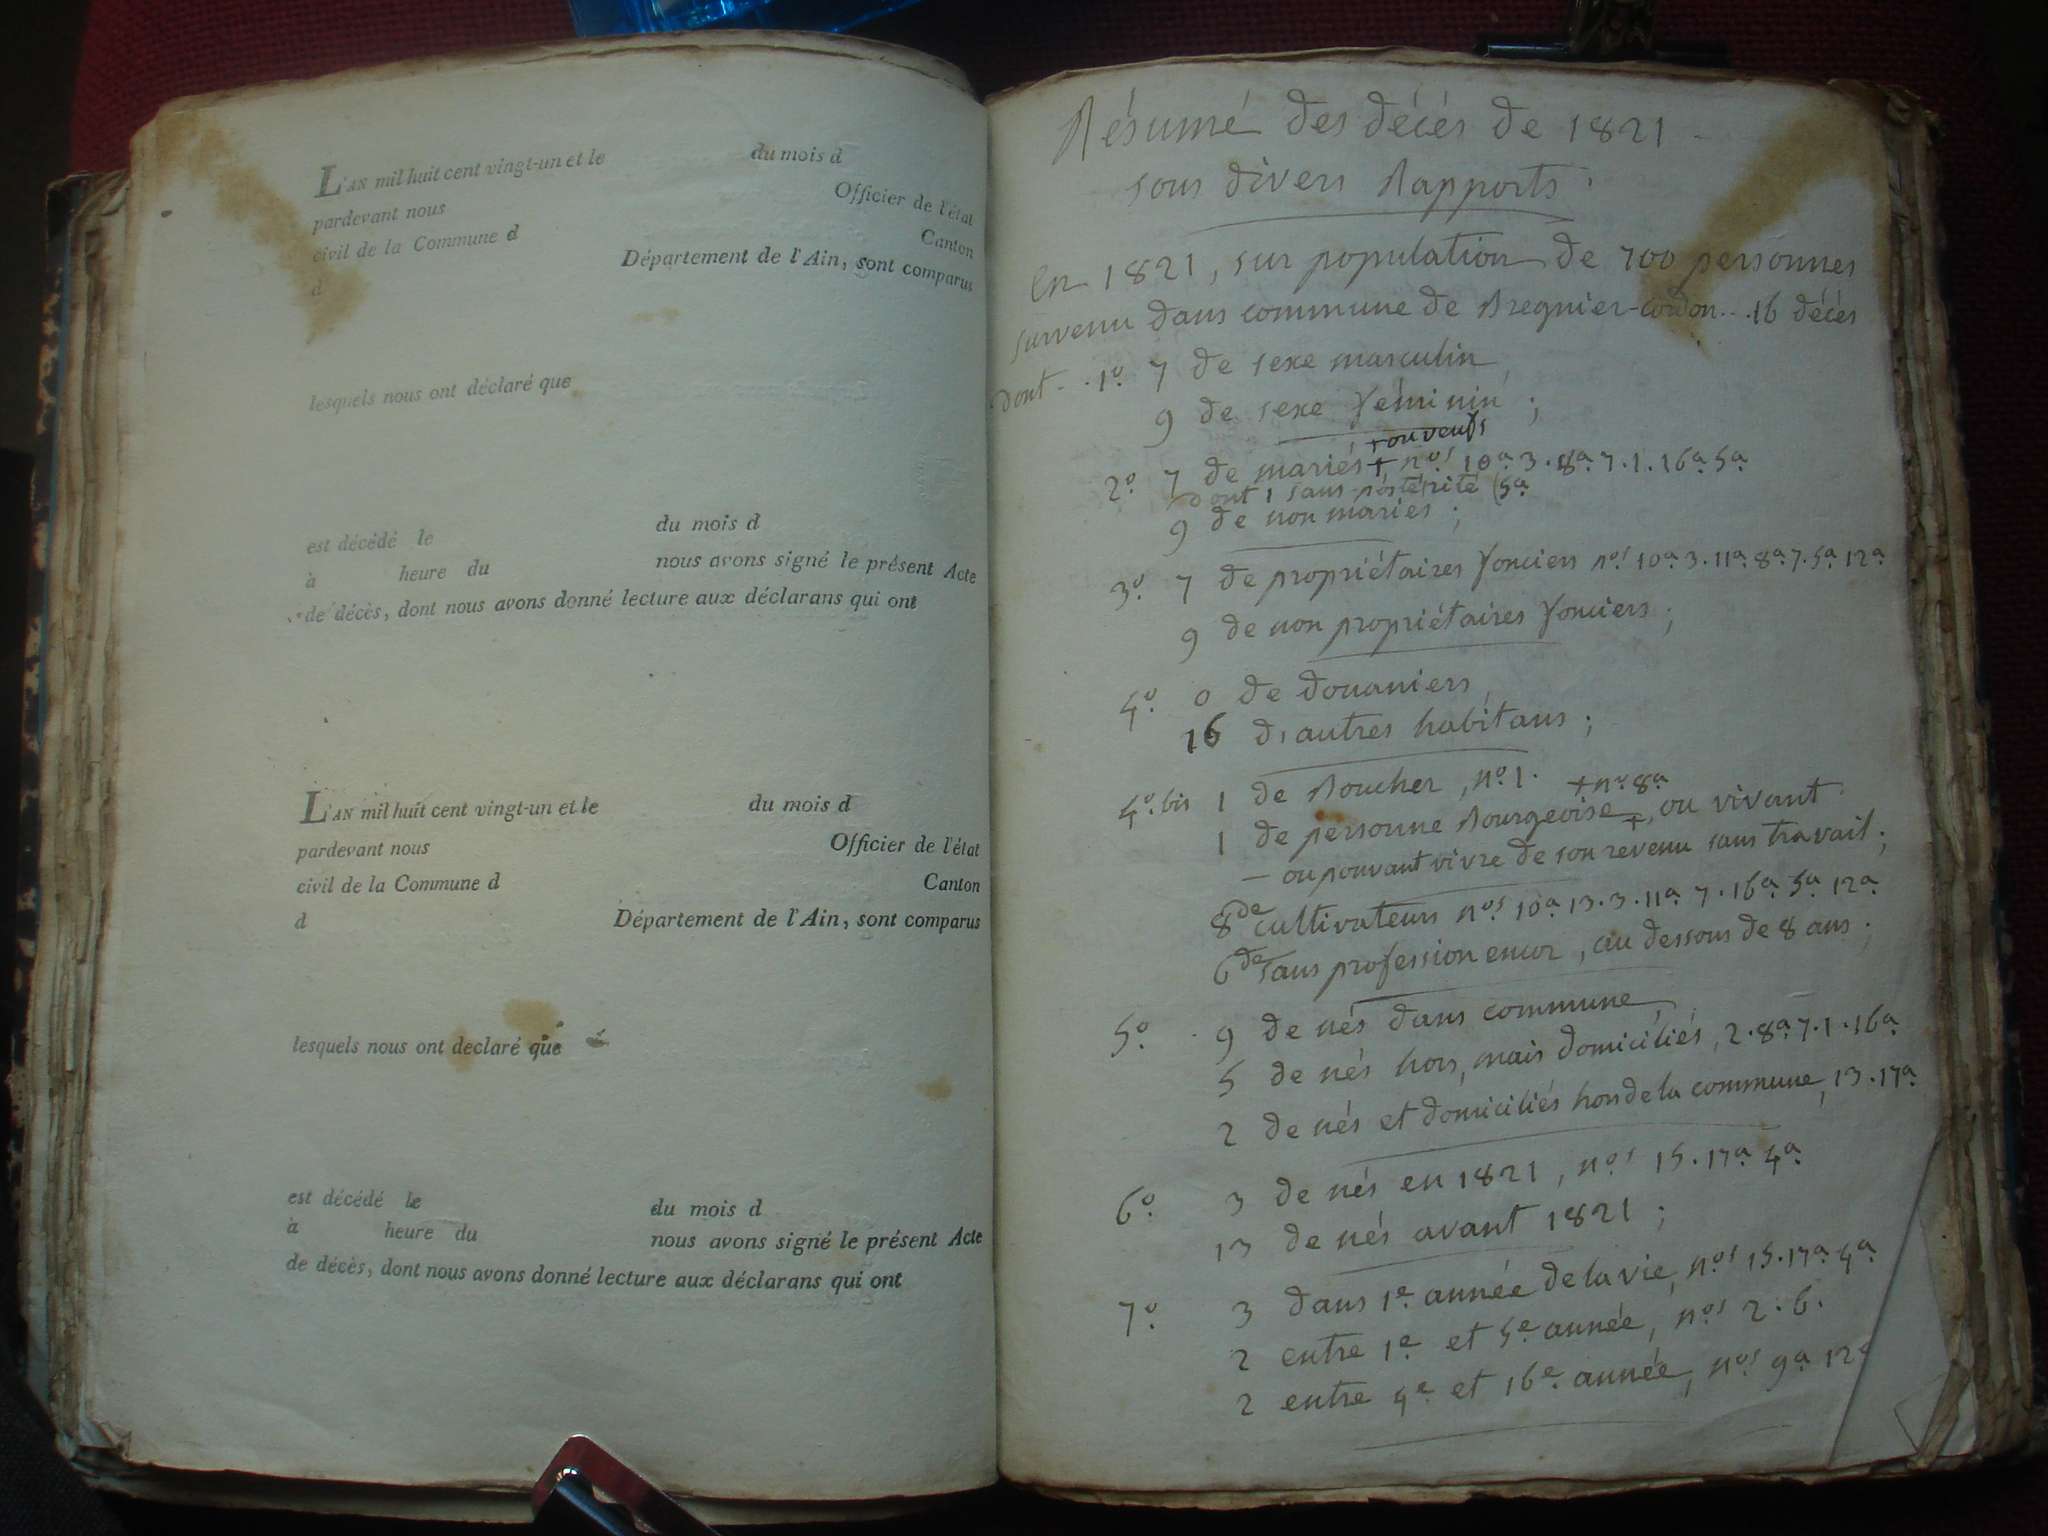 L'AN mil huit cent vingt-un et le du mois d
pardevant nous Officier de l'état
civil de la Commune d Canton
d Département de l'Ain, sont comparus
lesquels nous ont déclaré que
est décédé le du mois d
à heure du nous avons signé le présent Acte
de décès, dont nous avons donné lecture aux déclarans qui ont
L'AN mil huit cent vingt-un et le du mois d
pardevant nous Officier de l'état
civil de la Commune d Canton
d Département de l'Ain, sont comparus
lesquels nous ont declaré que
est décédé le du mois d
à heure du nous avons signé le présent Acte
de décès, dont nous avons donné lecture aux déclarans qui ont
Résumé des décés de 1821
sous divers Rapports.
En 1821, sur population de 700 personnes
survenu dans commune de Bregnier-cordon... 16 décés
dont - . 1º. 7 de sexe masculin,
9 de sexe féminin ;
+ ou veufs
2º. 7 de mariés + nos 10a. 3. 18a. 7. 1. 16a. 5a.
dont 1 sans postérité (5a.
9 de non mariés ;
3º. 7 de propriétaires fonciers nos 10a. 3. 11a. 8a. 7. 5a. 12a.
9 de non propriétaires fonciers ;
4º. 0 de douaniers,
16 d'autres habitans ;
4º. bis 1 de Boucher, nº. 1.
+ nº. 8a.
1 de personne Bourgeoise +, ou vivant
- ou pouvant vivre de son revenu sans travail ;
8 de cultivateurs nos 10a. 13. 3. 11a. 7. 16a. 5a. 12a.
6 de sans profession encor, au dessous de 8 ans ;
5º. 9 de nés dans commune,
5 de nés hors, mais domiciliés, 2. 8a. 7. 1. 16a.
2 de nés et domiciliés hors de la commune, 13. 17a.
6º. 3 de nés en 1821, nos 15. 17a. 4a.
13 de nés avant 1821 ;
7º. 3 dans 1e. année de la vie, nos 15. 17a. 4a.
2 entre 1e. et 5e. année, nos 2. 6.
2 entre 4e. et 16e. année, nos 9a. 12a